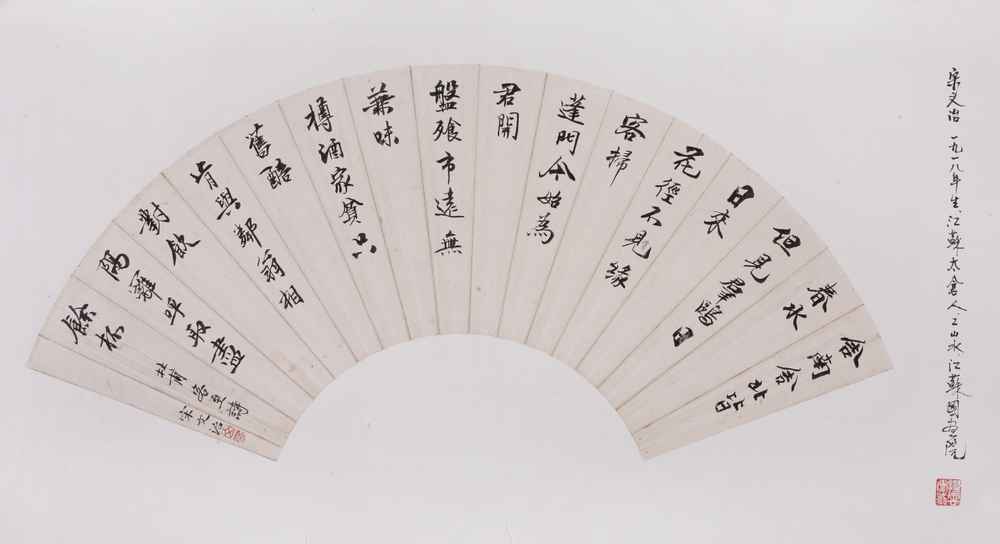 舍南舍北皆
春水
但見羣鷗日
日來
花徑不見緣
客掃
蓬門今始為
君開
盤飧市遠無
兼味
樽酒家貧只
舊醅
肯與鄰翁相
對飲
隔籬呼取盡
餘杯
杜甫客至詩
宋文治
宋文治 一九一八年生江蘇太倉人工山水江蘇國畫院